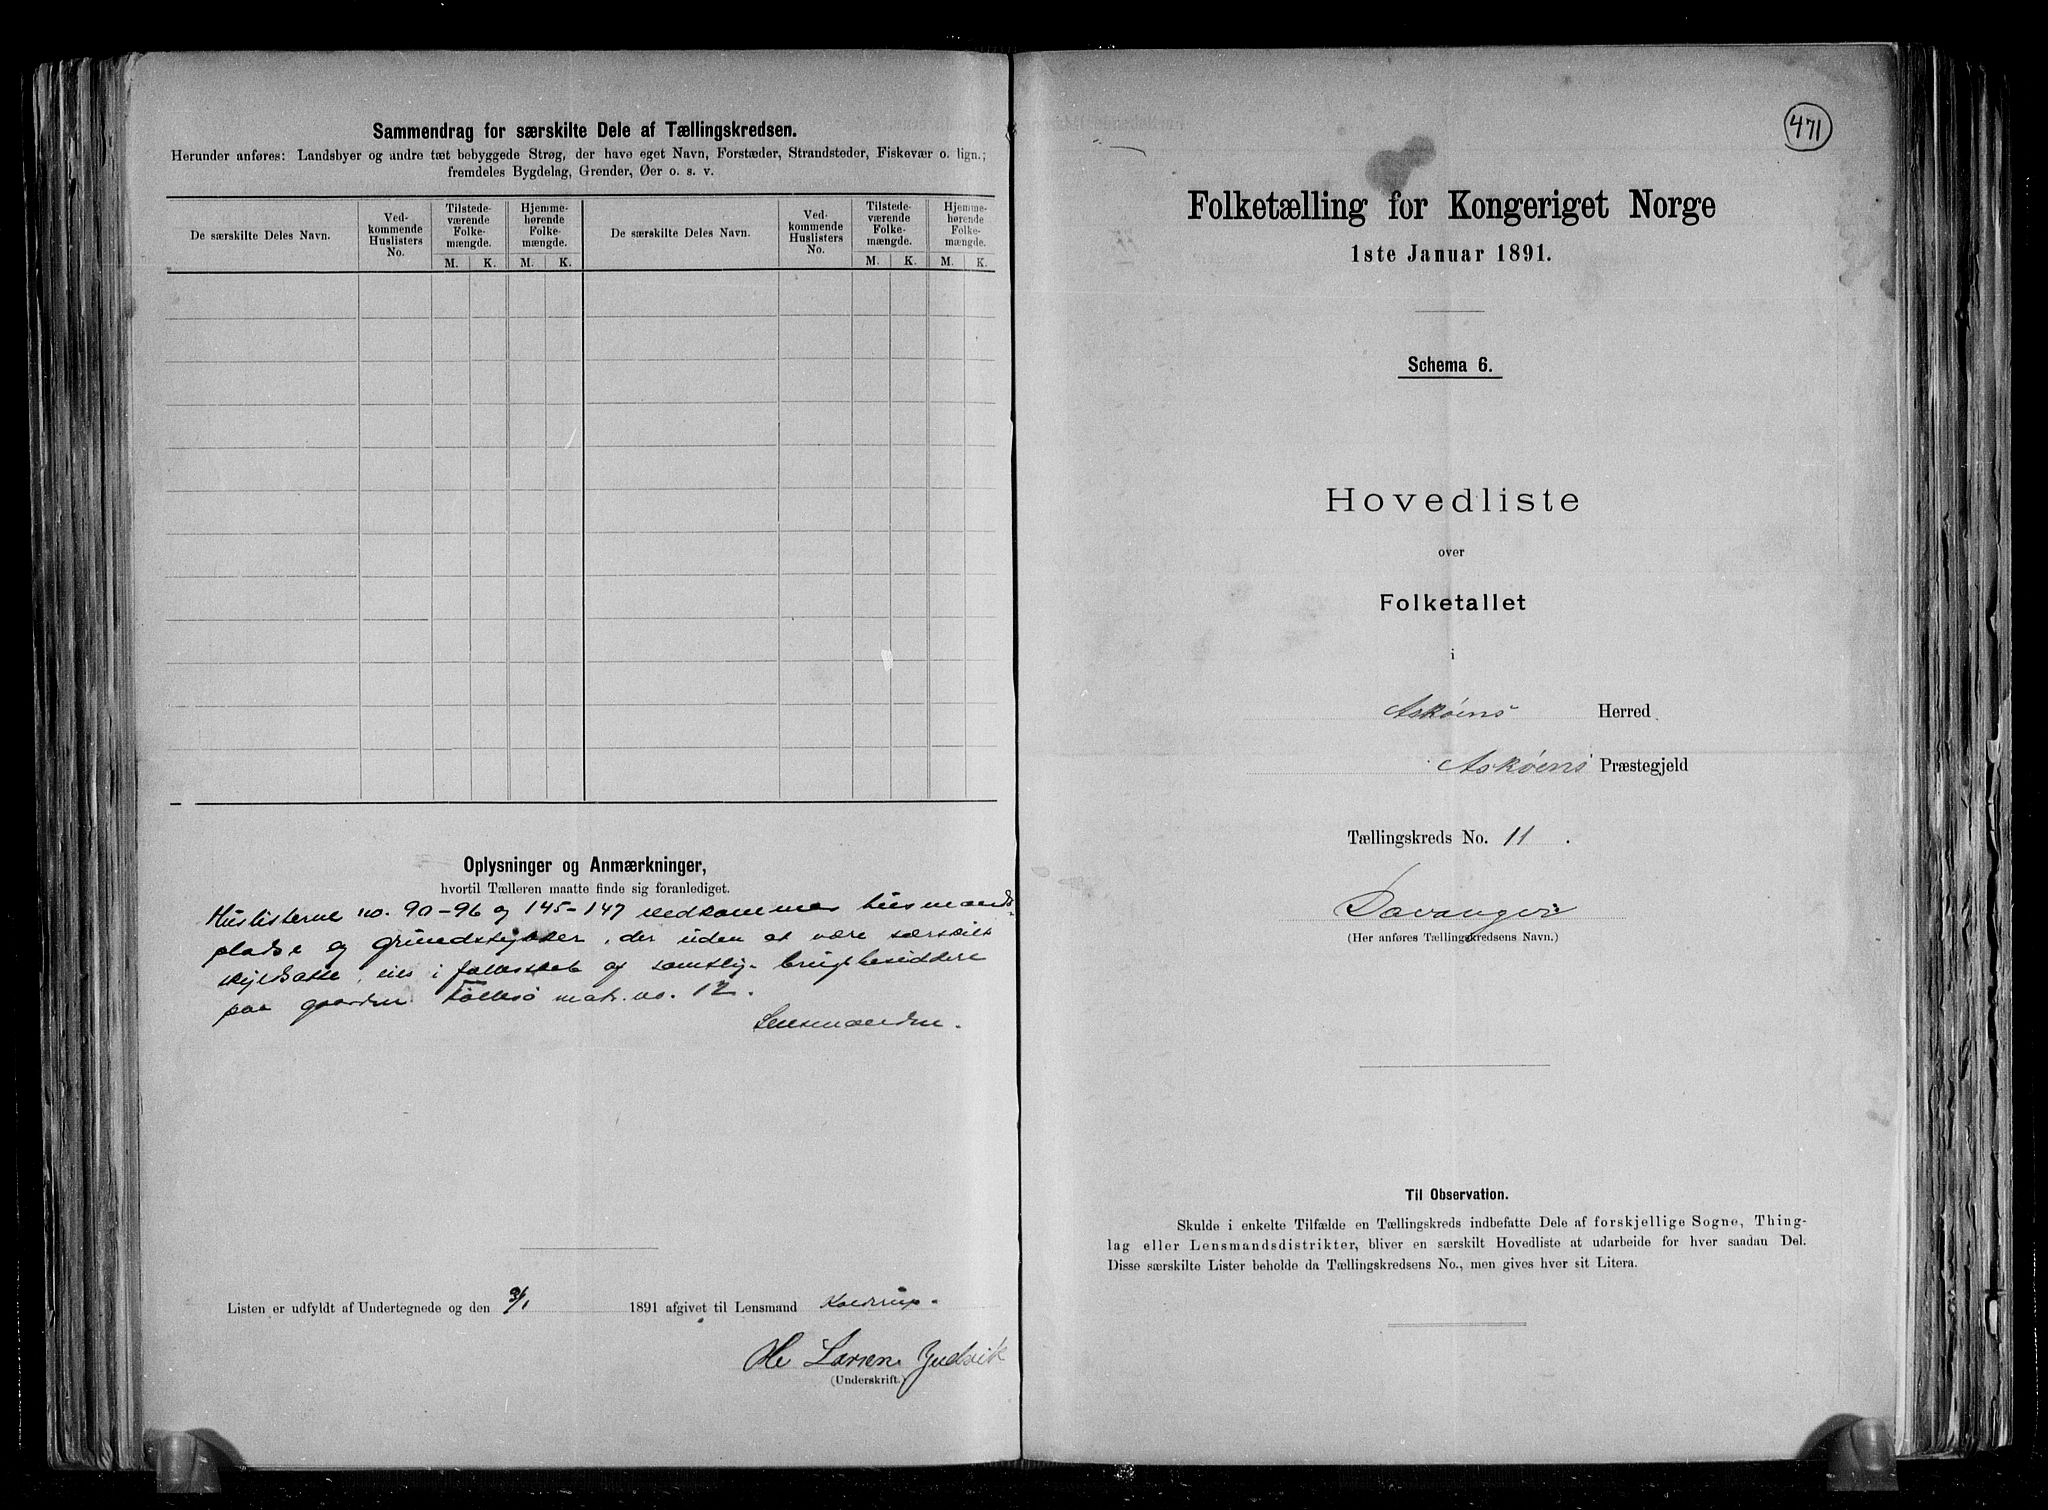 Sammendrag for særskilte Dele af Tællingskredsen.
Herunder anføres: Landsbyer og andre tæt bebyggede Strøg, der have eget Navn, Forstæder, Strandsteder, Fiskevær o. lign.;
fremdeles Bygdelag, Grender, Øer o. s. v.
De særskilte Deles Navn.
Ved-
kommende
Huslisters
No.
Tilstede-
værende
Folke-
mængde.
Hjemme-
hørende
Folke-
mængde.
De særskilte Deles Navn.
Ved-
kommende
Huslisters
No.
Tilstede-
værende
Folke-
mængde.
Hjemme-
hørende
Folke-
mængde.
M. K. M. K. M. K. M. K.
Oplysninger og Anmærkninger,
hvortil Tælleren maatte finde sig foranlediget.
Huslisterne no. 90-96 og 145-147 vedkommer husmands-
pladse og grundstykker, der uden at være særskilt
skyldsatte, eies i fællesskab af samtlige brugsbesiddere
paa gaarden matr. no. 12.
Lensmanden.
Listen er udfyldt af Undertegnede og den 1891 afgivet til Lensmand
Larsen
(Underskrift.)
471
Folketælling for Kongeriget Norge
1ste Januar 1891.
Schema 6.
Hovedliste
over
Folketallet
i
Askøens Herred
Askøens Præstegjeld
Tællingskreds No. 11.
Davanger
(Her anføres Tællingskredsens Navn.)
Til Observation.
Skulde i enkelte Tilfælde en Tællingskreds indbefatte Dele af forskjellige Sogne, Thing-
lag eller Lensmandsdistrikter, bliver en særskilt Hovedliste at udarbeide for hver saadan Del.
Disse særskilte Lister beholde da Tællingskredsens No., men gives hver sit Litera.